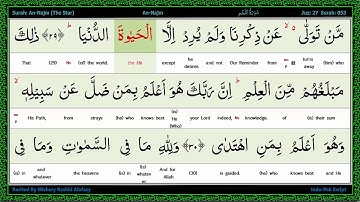 Surah: An-Najm (The Star) An-Najm سُوْرَةُ النَّجْم Juz: 27 Surah: 053
مَّنْ تَوَلّٰى ۙ۬ عَنْ ذِكْرِنَا وَلَمْ يُرِدْ اِلَّا الْحَيٰوةَ الدُّنْيَا ﴿۲۹﴾ ذٰلِكَ
That (29) (of) the world. the life except he desires and not Our Reminder from turns away (him) who
مَبْلَغُهُمْ مِّنَ الْعِلْمِ ؕ اِنَّ رَبَّكَ هُوَ اَعْلَمُ بِمَنْ ضَلَّ عَنْ سَبِيْلِهٖ ۙ
His Path, from strays (he) who knows best (is) He (Who) your Lord Indeed, knowledge of (is) their sum
وَهُوَ اَعْلَمُ بِمَنِ اهْتَدٰى ﴿۳۰﴾ وَلِلّٰهِ مَا فِى السَّمٰوٰتِ وَمَا فِى
(is) in and whatever the heavens (is) in whatever And for Allah (30) is guided. (of) he who knows best and He
Recited By Mishary Rashid Alafasy Indo-Pak Script